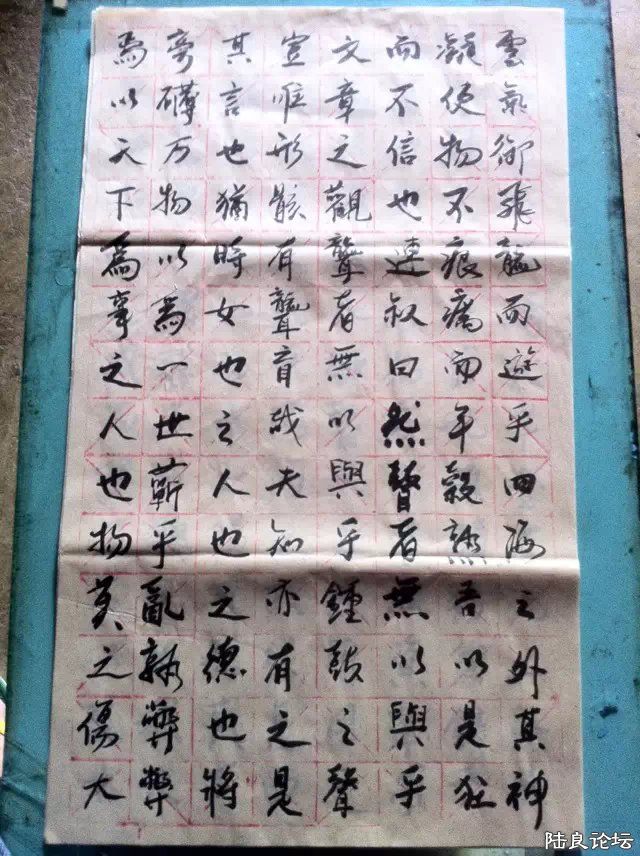 雲氣御飛龍而遊乎四海之外其神
凝使物不疵癘而年穀熟吾以是狂
而不信也連叔曰然瞽者無以與乎
文章之觀聾者無以與乎鍾鼓之聲
豈唯形骸有聾盲哉夫知亦有之是
其言也猶時女也之人也之德也將
旁礴万物以為一世蘄乎亂孰弊弊
焉以天下為事之人也物莫之傷大
陆良论坛